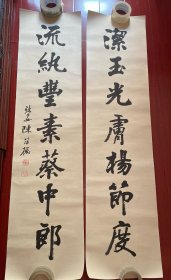 潔玉光膚楊節度
流紈豐素蔡中郎